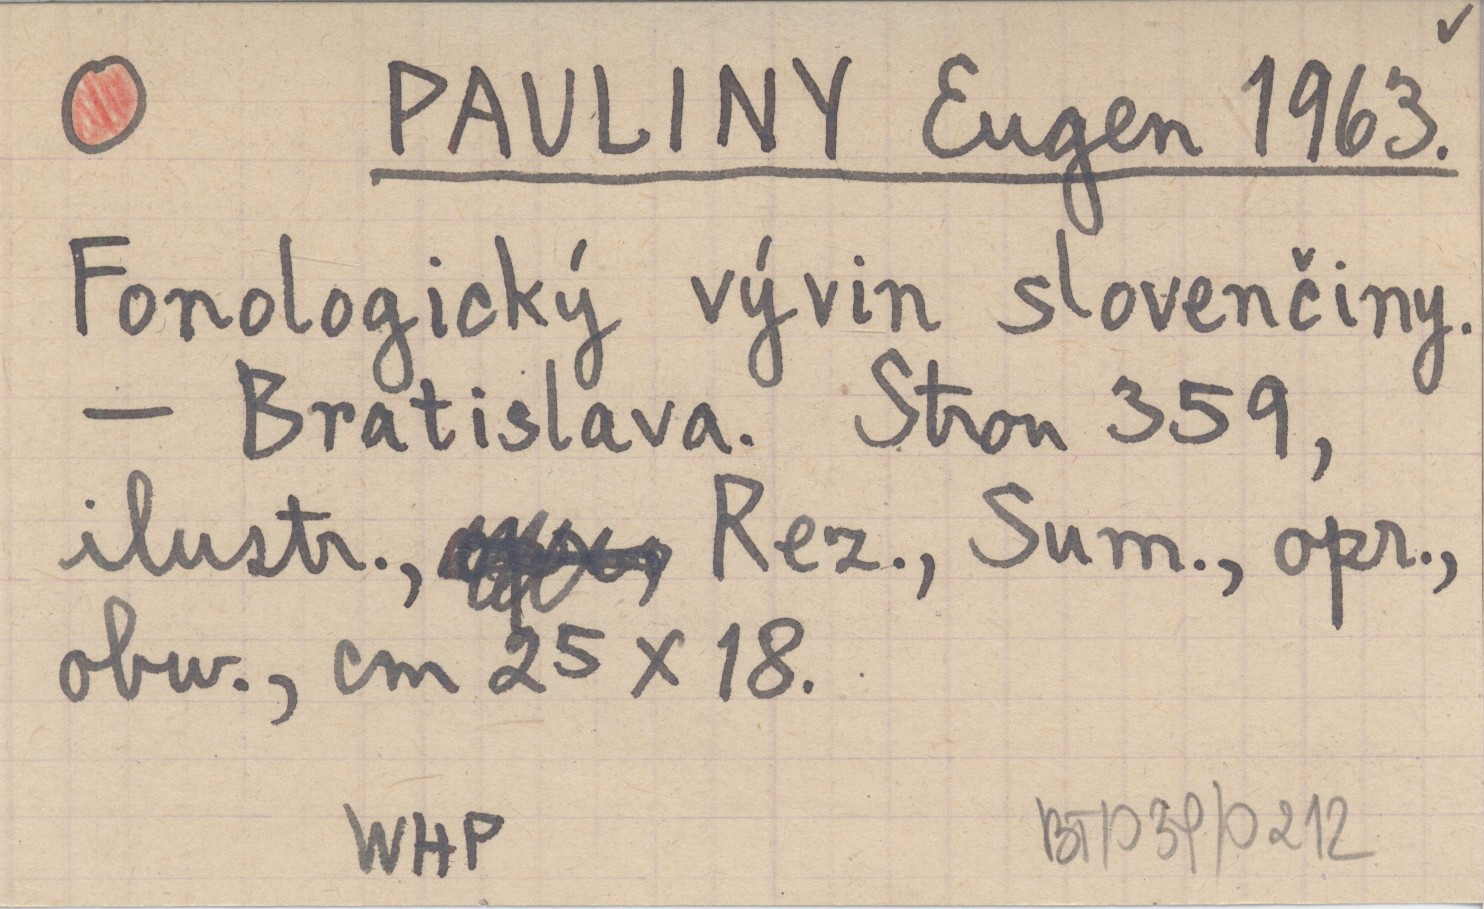 PAULINY Eugen 1963.
Fonologický vývin slovenčiny.
— Bratislava. Stron 359,
ilustr., Rez., Sum., opr.,
obw., cm 25 x 18.
WHP